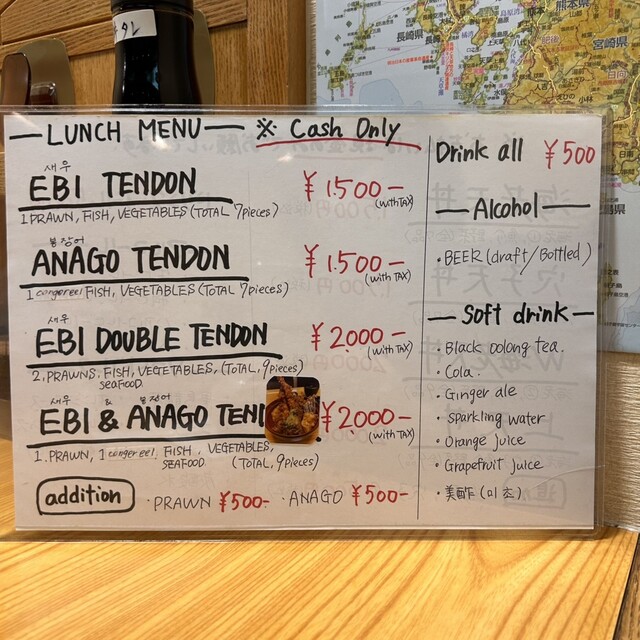 長崎県
熊本県
宮崎県
— LUNCH MENU — ※ Cash Only
새우
EBI TENDON ¥1.500-
(with TAX)
1 PRAWN, FISH, VEGETABLES (TOTAL 7pieces)
붕장어
ANAGO TENDON ¥1.500-
(with TAX)
1 congereel FISH, VEGETABLES (TOTAL 7pieces)
새우
EBI DOUBLE TENDON ¥2.000-
(with TAX)
2, PRAWNS, FISH, VEGETABLES, (TOTAL, 9pieces)
SEAFOOD
새우 & 붕장어
EBI & ANAGO TEND ¥2.000-
(with TAX)
1. PRAWN, 1 congereel, FISH, VEGETABLES,
SEAFOOD (TOTAL, 9pieces)
addition ・PRAWN ¥500- ・ANAGO ¥500-
Drink all ¥500
— Alcohol —
・BEER (draft/Bottled)
— Soft drink —
・Black oolong tea.
・Cola.
・Ginger ale
sparkling water
・Orange juice
・Grapefruit juice
・美酢 (미초)